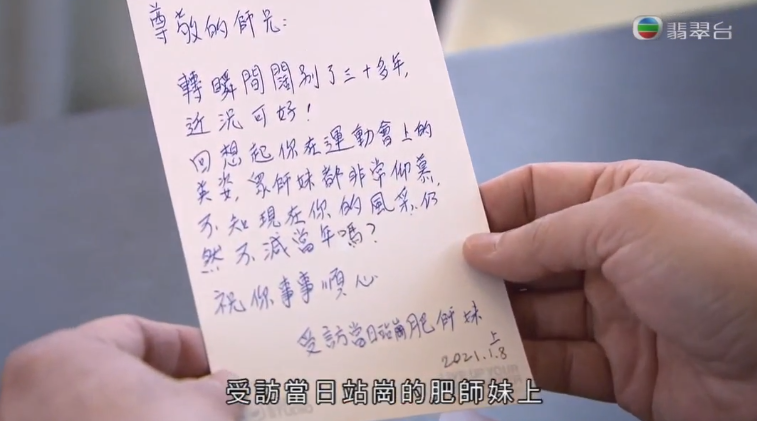 翡翠台
尊敬的師兄：
轉瞬間闊別了三十多年，
近況可好！
回想起你在運動會上的
英姿，眾師妹都非常仰慕，
不知現在你的風采仍
然不減當年嗎？
祝你事事順心
受訪當日站崗肥師妹
上
2021.1.8
受訪當日站崗的肥師妹上